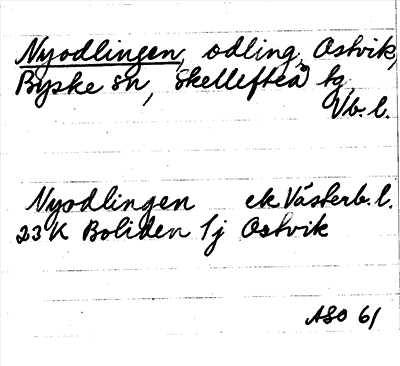 Nyodlingen, odling, Ostvik,
Byske sn, Skellefteå kg,
Vb. l.
Nyodlingen ek Västerb. l.
23K Boliden 1j Ostvik
ASO 61